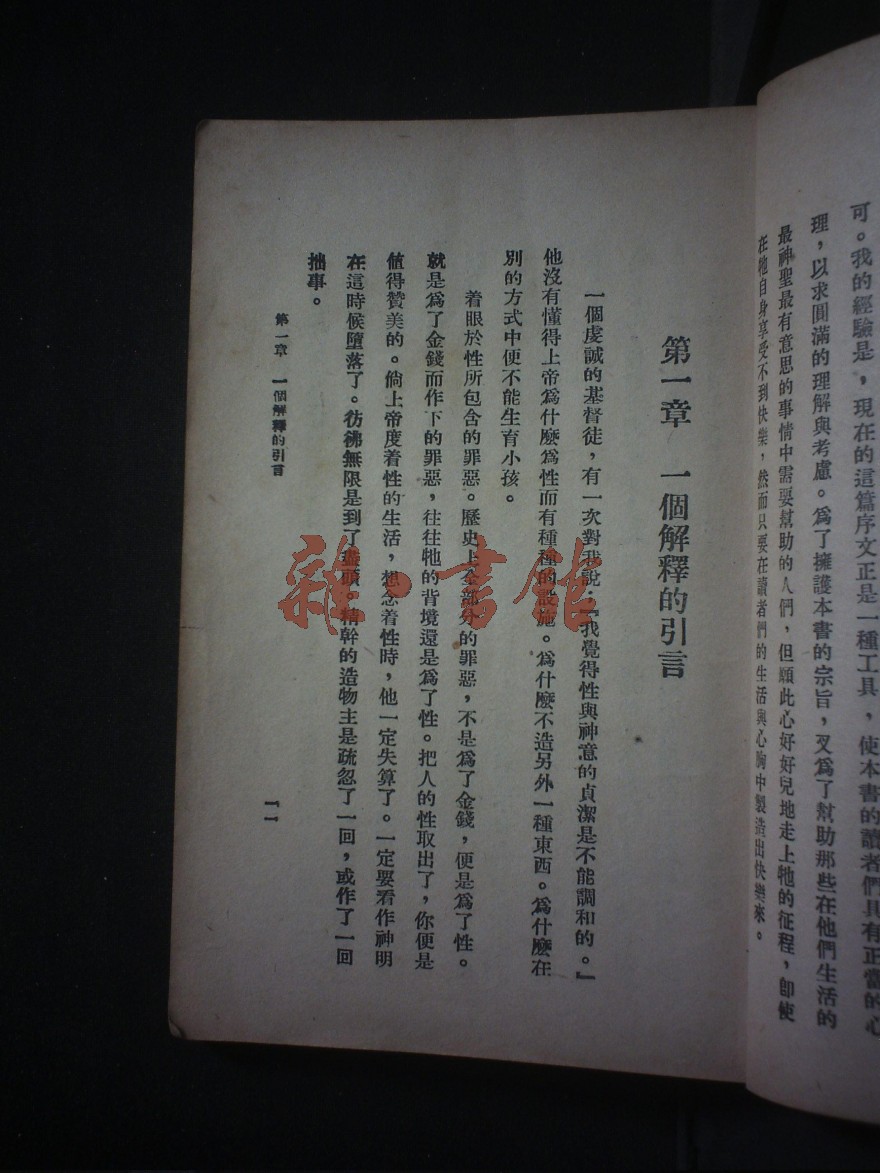 可。我的經驗是，現在的這篇序文正是一種工具，使本書的讀者們具有正當的心
理，以求圓滿的理解與考慮。爲了擁護本書的宗旨，又爲了幫助那些在他們生活的
最神聖最有意思的事情中需要幫助的人們，但願此心好好兒地走上牠的征程，卽使
在牠自身享受不到快樂，然而只要在讀者們的生活與心胸中製造出快樂來。
第一章　一個解釋的引言
一個虔誠的基督徒，有一次對我說：『我覺得性與神意的貞潔是不能調和的。』
他沒有懂得上帝爲什麽爲性而有種種的設施。爲什麽不造另外一種東西。爲什麽在
別的方式中便不能生育小孩。
着眼於性所包含的罪惡。歷史上全部分的罪惡，不是爲了金錢，便是爲了性。
就是爲了金錢而作下的罪惡，往往牠的背境還是爲了性。把人的性取出了，你便是
值得贊美的。倘上帝度着性的生活，想念着性時，他一定失算了。一定要看作神明
在這時候墮落了。彷彿無限是到了盡頭，精幹的造物主是疏忽了一回，或作了一回
拙事。
第一章　一個解釋的引言
一一
雜·書館